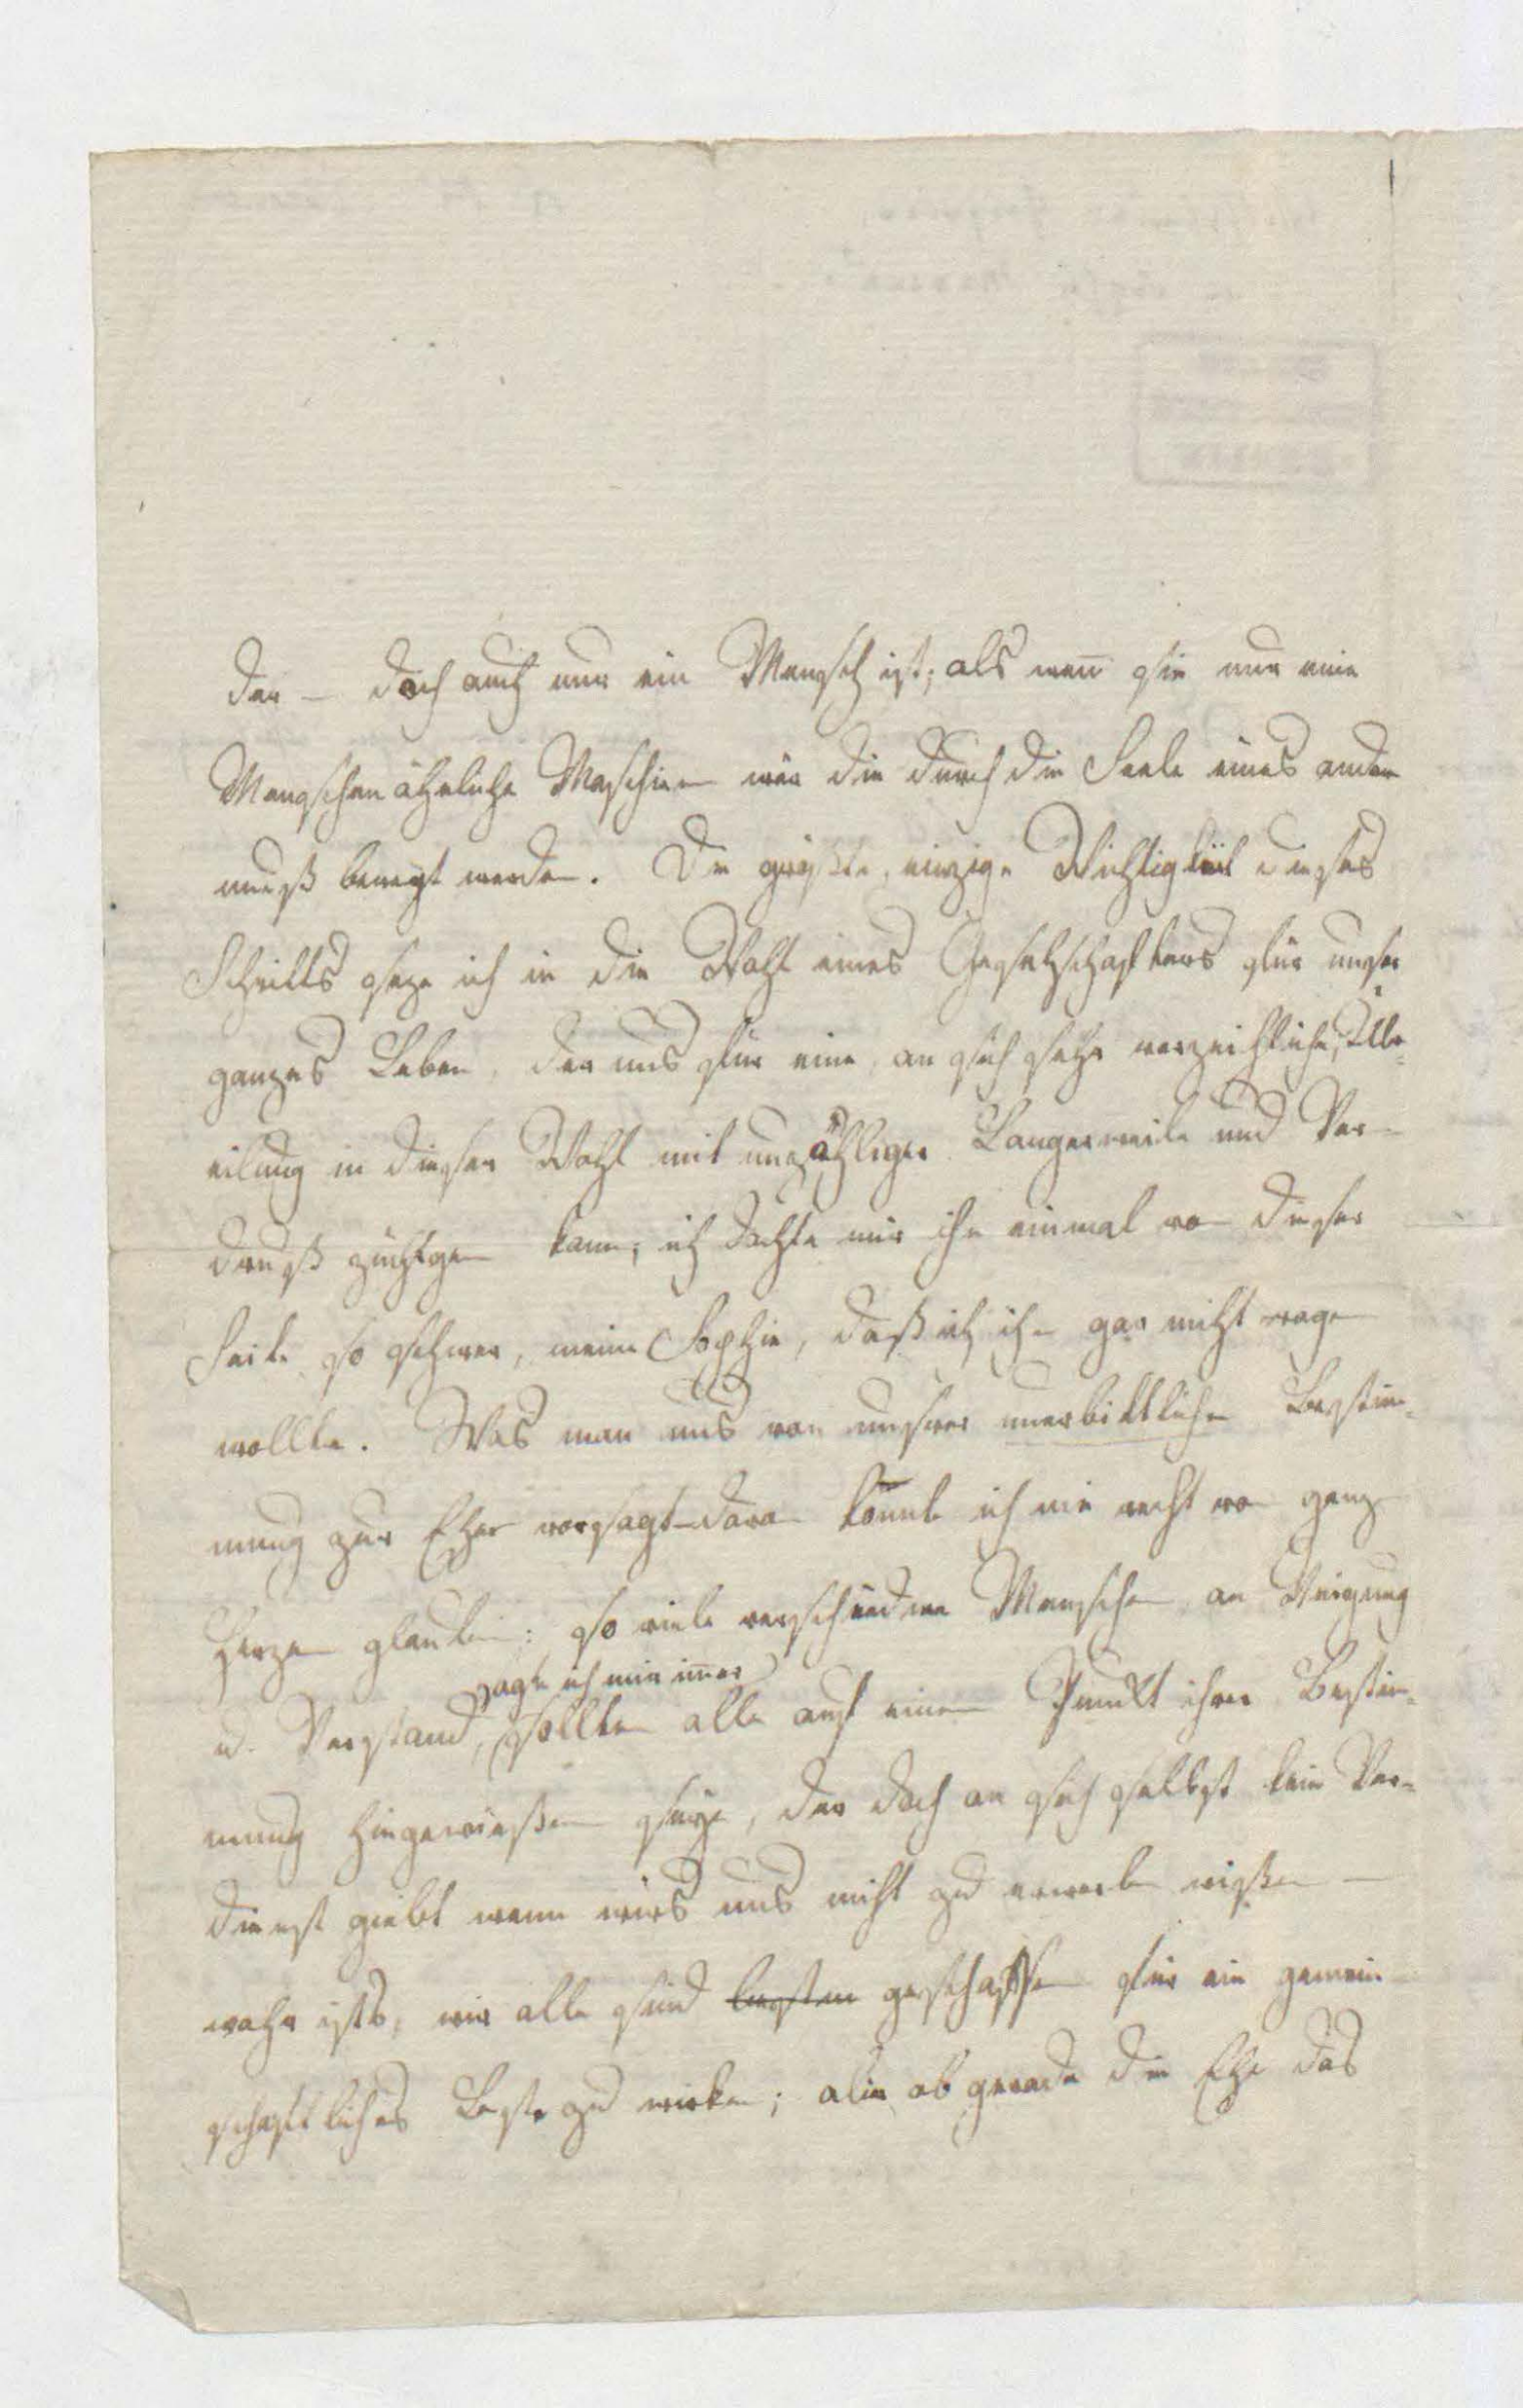 der – doch auch nur ein Mensch ist; als weñ sie nur eine
Menschen ähnliche Maschine wär die durch die Seele eines andern
muß bewegt werden. Die größte, einzige Wichtigkeit dieses
Schritts seze ich in die Wahl eines Gesellschafters für unser
ganzes Leben, der uns für eine, an sich sehr verzeihliche, Ueber¬
eilung in dieser Wahl mit unzähliger Langerweile und Ver¬
druß züchtigen kann; ich dachte mir ihn einmal von dieser
Seite so schwer, meine Sophie, daß ich ihn gar nicht wagen
wollte. Was man uns von unsrer unerbittlichen Bestim¬
mung zur Ehe vorsagt – daran konnte ich nie recht von ganzem
Herzen glauben: so viele verschiedene Menschen an Neigung
sagte ich mir im̄er
u. Verstand, sollten alle auf einen Punkt ihrer Bestim¬
mung hingewießen seyn, der doch an sich selbst kein Ver¬
dienst giebt wenn wirs uns nicht zu erwerben wißen –
wahr ists, wir alle sind geschaffen für ein gemein
schaftliches Beste zu wirken; aber ob gerade die Ehe das